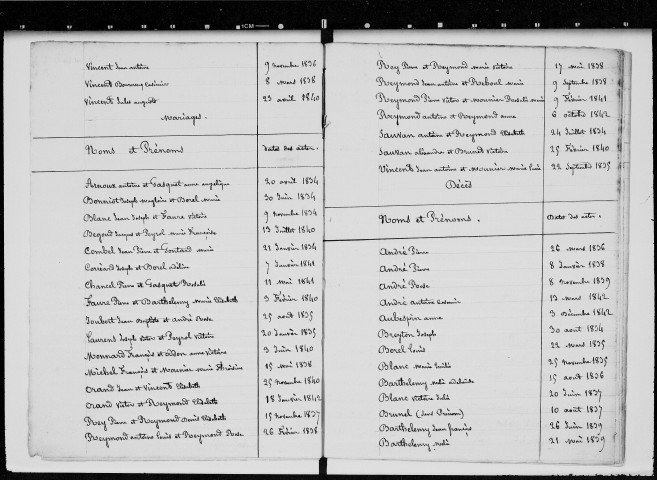 Vincent Jean antoine 9 novembre 1836
Vincent Casimir 8 mars 1838
Vincent Jules auguste 23 avril 1840
Mariages.
Noms et Prénoms dates des actes.
Arnoux antoine et Gasquet anne angelique 20 avril 1834
Bonniot Joseph et Borel marie 30 Juin 1834
Blanc Jean Joseph et Faure Victoire 9 novembre 1834
Begoud Jacques et Peyrol marie Françoise 13 Juillet 1840
Combel Jean Pierre et Gontard marie 21 Janvier 1834
Joseph et Borel adeline 7 Janvier 1841
Chancel Pierre et Gasquet Rosalie 11 mai 1841
Faure Pierre et Barthelemy marie Elisabeth 3 Février 1840
Joubert Jean Baptiste et andré Rose 25 août 1835
Laurens Joseph Victor et Peyrol Victoire 20 Janvier 1835
Monnard François et addon anne Victoire 3 Juin 1840
Michel François et Mounier marie 15 mai 1838
Orand Jean et Vincent Elisabeth 25 novembre 1840
Orand Victor et Reymond Elisabeth 18 Janvier 1842
Rey Pierre et Reymond Elisabeth 15 novembre 1837
Reymond antoine Louis et Reymond Rose 26 Février 1838
Rey Pierre et Reymond marie Victoire 17 mai 1838
Reymond Jean antoine et Reboul marie 9 Septembre 1838
Reymond Pierre Victor et mounier Rosalie marie 9 Février 1841
Reymond antoine et Reymond anne 6 octobre 1842
Sauvan antoine et Reymond Elisabeth 24 Juillet 1834
Sauvan alexandre et Brunet Victoire 25 Février 1840
Vincent Jean antoine et Mounier marie 22 Septembre 1835
Décès
Noms et Prénoms. Dates des actes.
André Pierre 26 mars 1836
André Pierre 8 Janvier 1838
André Rose 8 novembre 1839
André antoine Casimir 13 mars 1842
Aubespin anne 3 Décembre 1842
Breyton Joseph 30 août 1834
Borel Louis 22 mars 1835
Blanc marie Emilie 25 novembre 1835
Barthelemy adelaide 15 août 1836
Blanc Victoire Julie 20 Juin 1837
Brunel (Sans Prénom) 10 août 1837
Barthelemy Jean françois 26 Juin 1839
Barthelemy 21 mai 1839